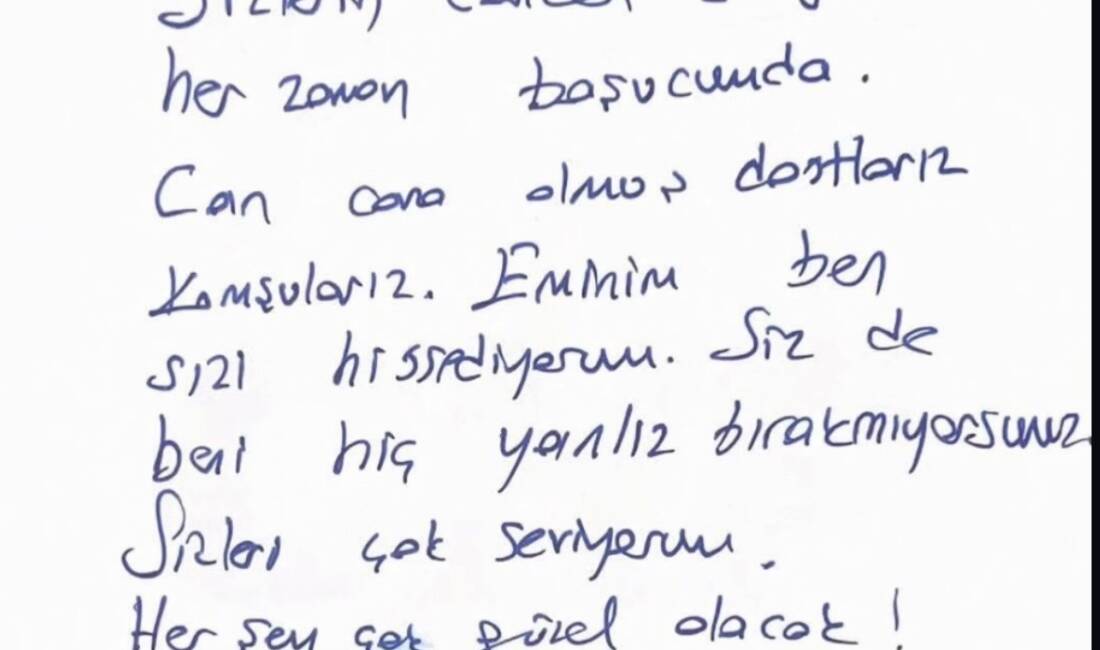 her zaman başucumda.
Can cana olmuş dostlarız
Komşularız. Eminim ben
sizi hissediyorum. Siz de
beni hiç yanlız bırakmıyorsunuz
Sizleri çok seviyorum.
Her şey çok güzel olacak!